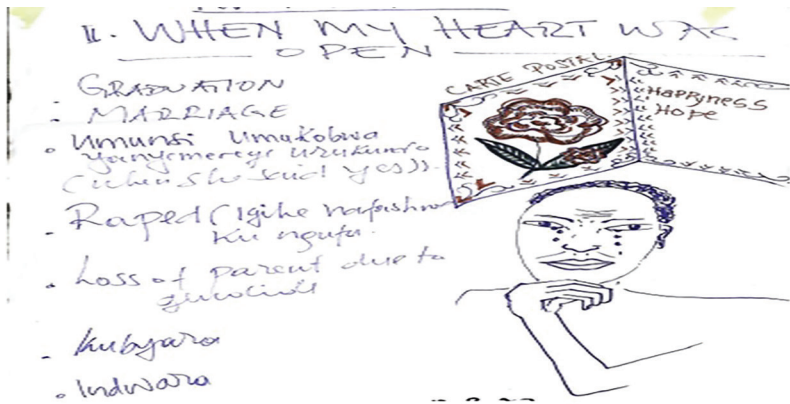 II. WHEN MY HEART WAS
OPEN
- GRADUATION
- MARRIAGE
• Umunsi Umukobwa
yanyemereye urukundo
(when she said yes)).
- Raped (Igihe nafashwe
ku ngufu.
• Loss of parent due to
genocide
- Kubyara
• Indwara
CARTE POSTAL
Happyness
Hope